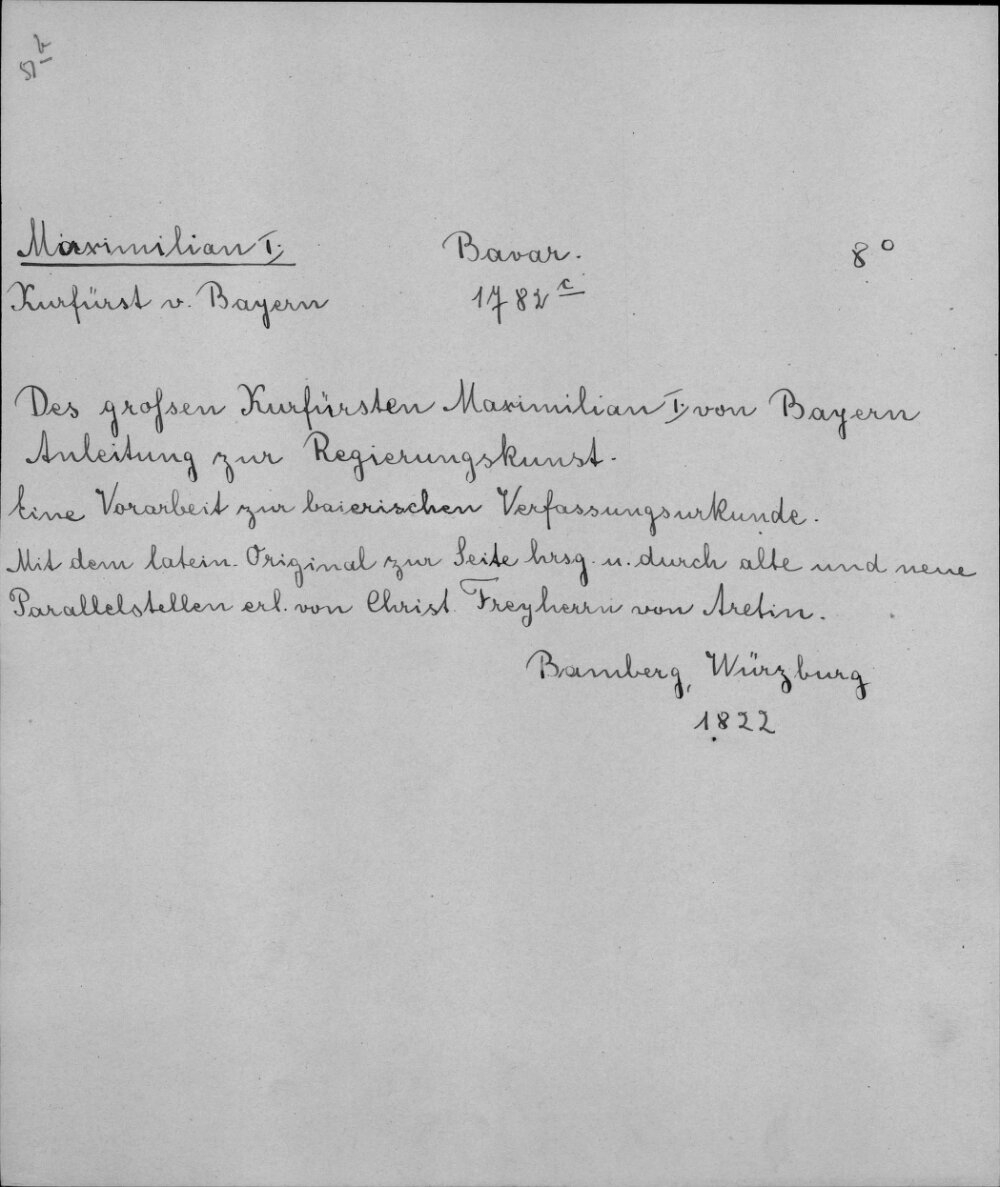 Maximilian I. Bavar. 8°
Kurfürst v. Bayern 1782 c
Des groſsen Kurfürsten Maximilian I. von Bayern
Anleitung zur Regierungskunst.
Eine Vorarbeit zur baierischen Verfassungsurkunde.
Mit dem latein. Original zur Seite hrsg. u. durch alte und neue
Parallelstellen erl. von Christ. Freyherrn von Aretin.
Bamberg, Würzburg
1822